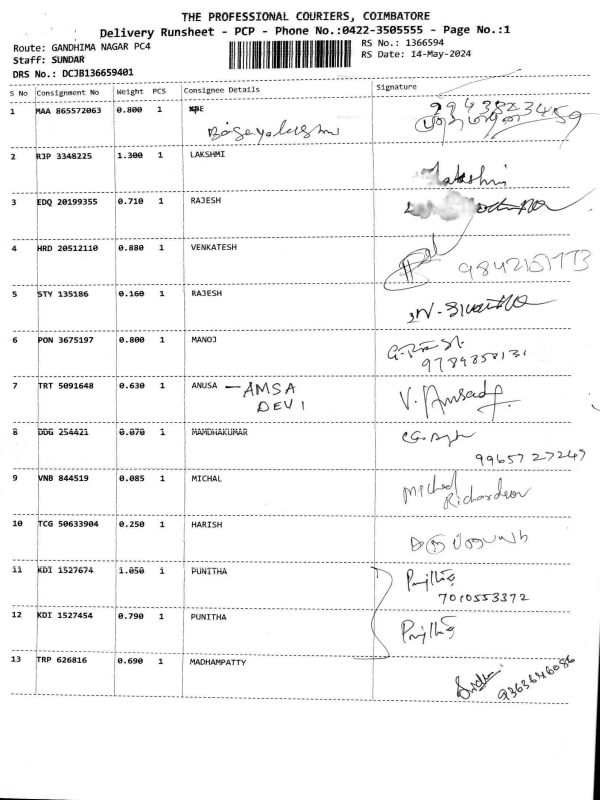 THE PROFESSIONAL COURIERS, COIMBATORE
Delivery Runsheet - PCP - Phone No.:0422-3505555 - Page No.:1
Route: GANDHIMA NAGAR PC4
RS No.: 1366594
Staff: SUNDAR
RS Date: 14-May-2024
DRS No.: DCJB136659401
S No Consignment No Weight PCS Consignee Details Signature
1 MAA 865572063 0.800 1
2 RJP 3348225 1.300 1 LAKSHMI
Lakshmi
3 EDQ 20199355 0.710 1 RAJESH
4 HRD 20512110 0.880 1 VENKATESH
5 STY 135186 0.160 1 RAJESH
6 PON 3675197 0.800 1 MANOJ
7 TRT 5091648 0.630 1 ANUSA — AMSA
DEVI
8 DDG 254421 0.070 1 MAMDHAKUMAR
99657 27247
9 VNB 844519 0.085 1 MICHAL
Michael
Richardson
10 TCG 50633904 0.250 1 HARISH
11 KDI 1527674 1.050 1 PUNITHA
7010553372
12 KDI 1527454 0.790 1 PUNITHA
13 TRP 626816 0.690 1 MADHAMPATTY